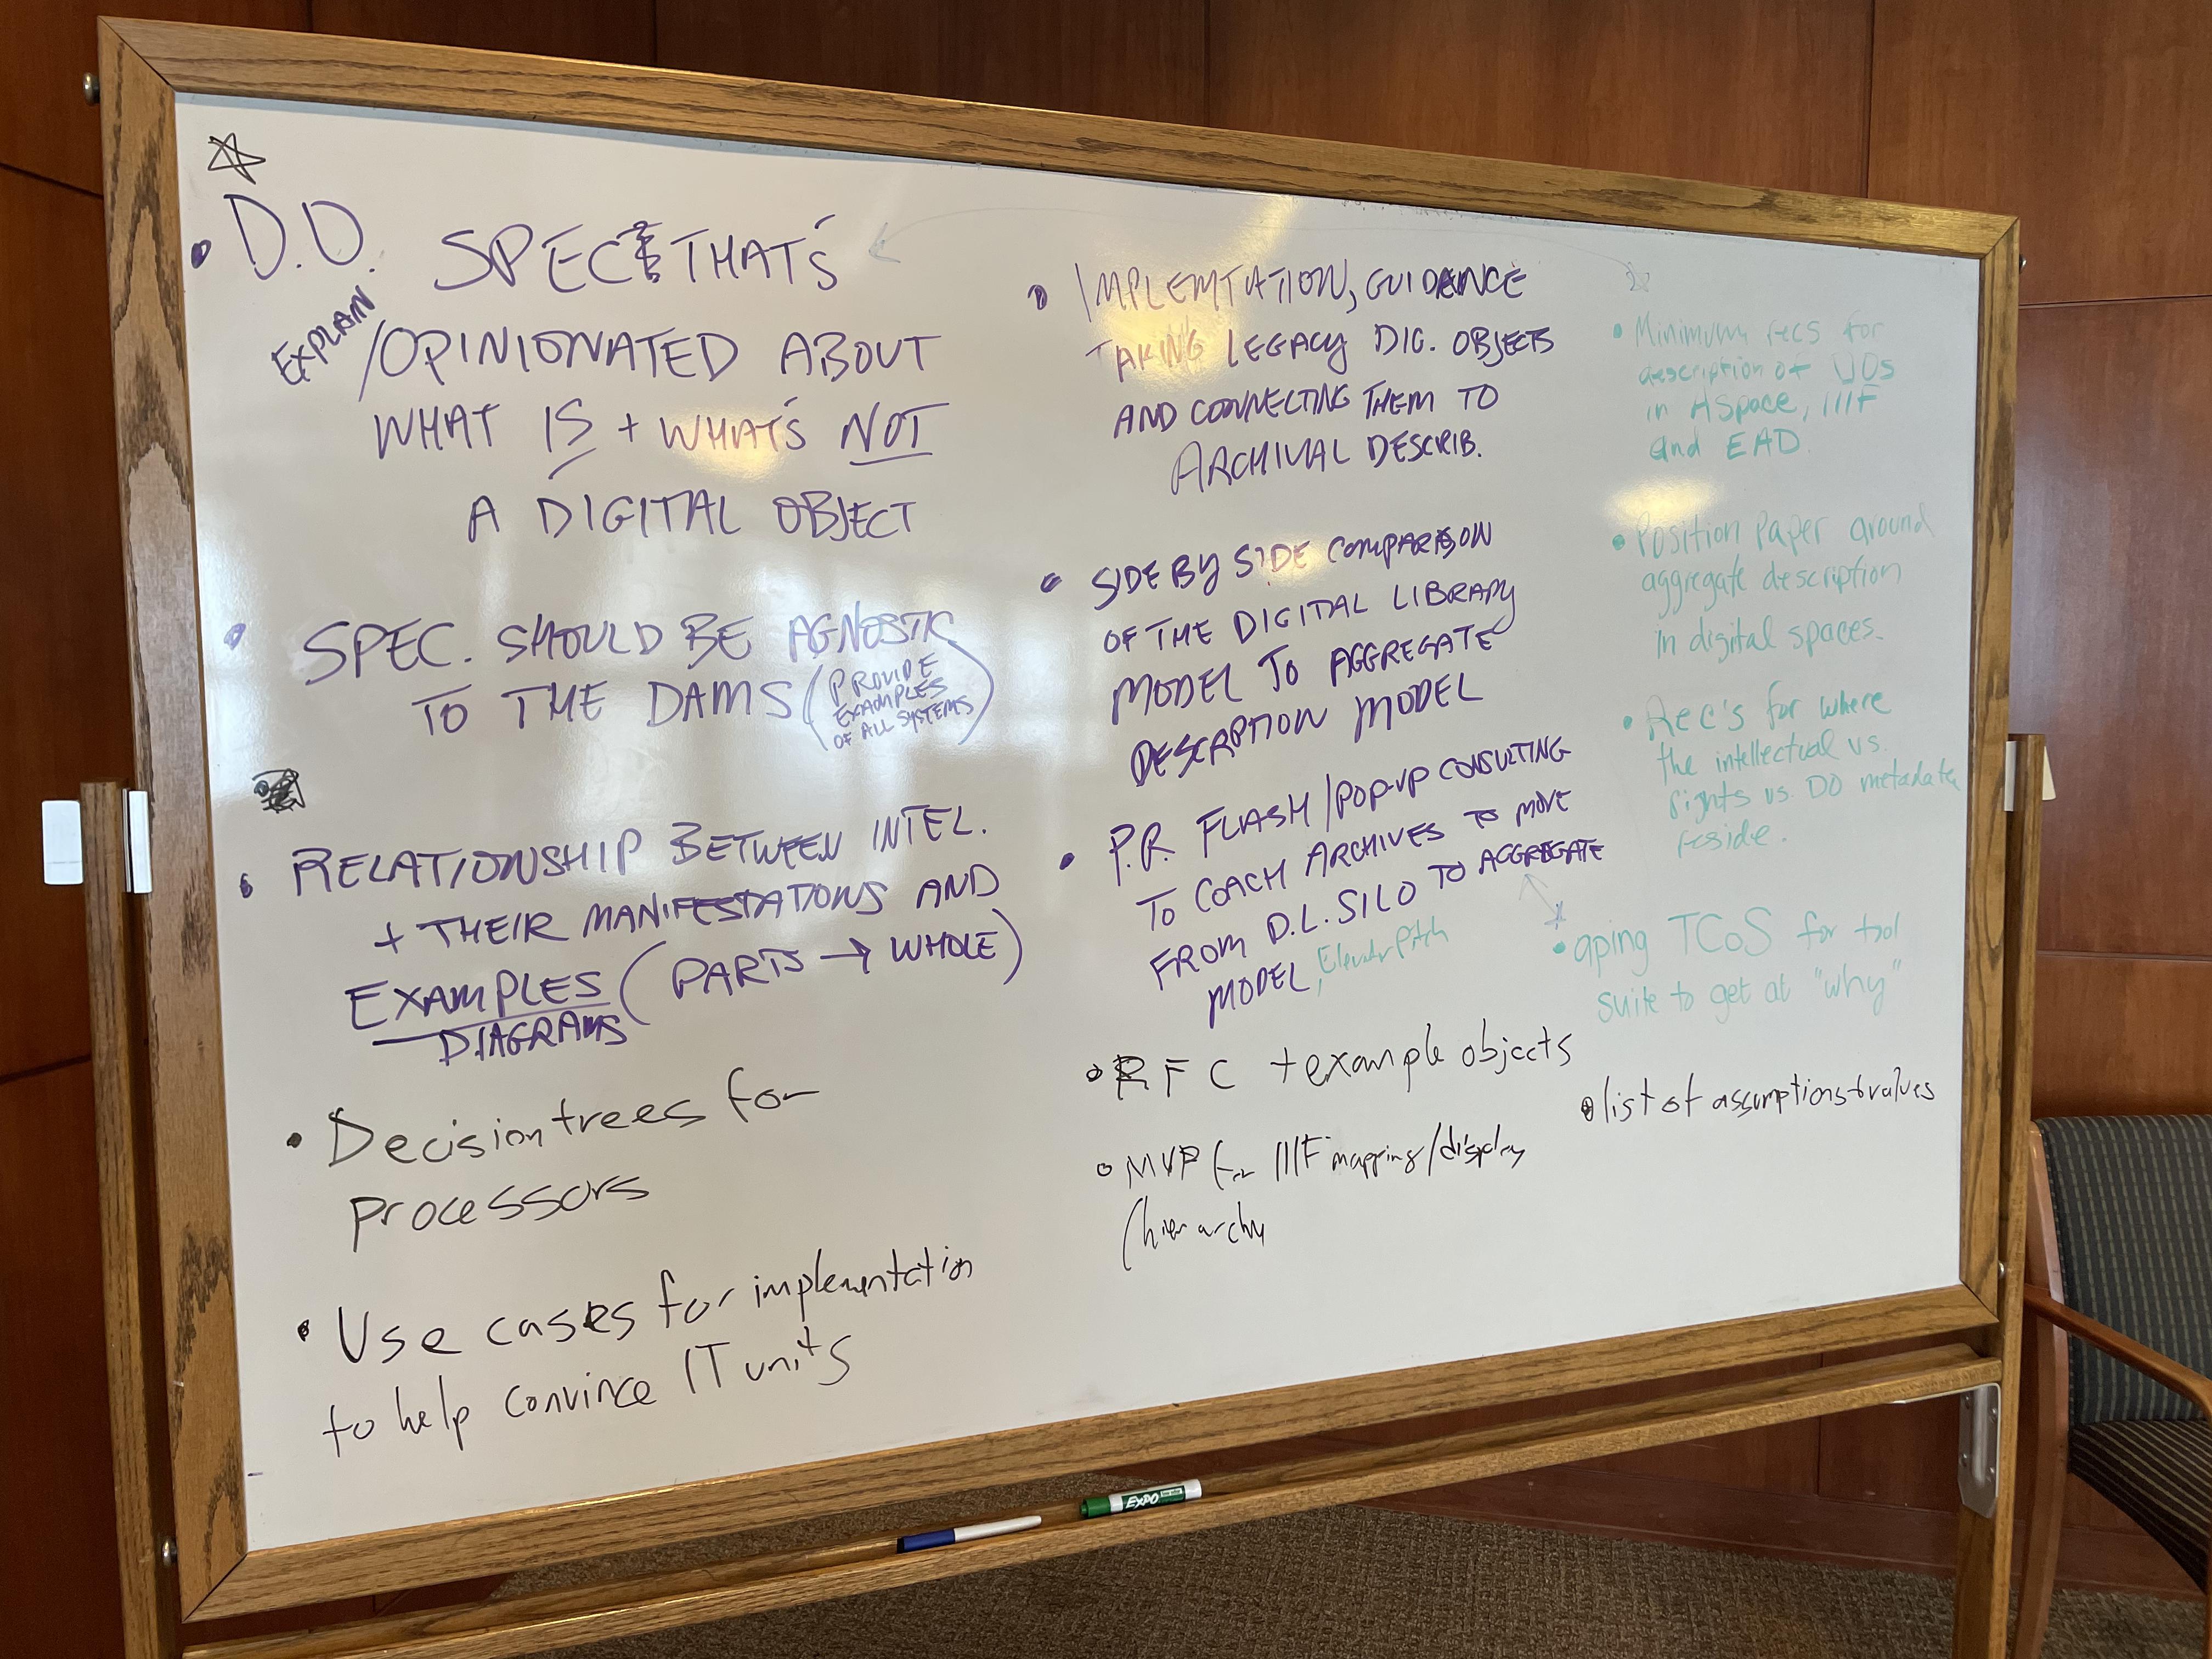 • D.O. SPEC THAT'S
EXPLAIN
/OPINIONATED ABOUT
WHAT IS + WHAT'S NOT
A DIGITAL OBJECT
• SPEC. SHOULD BE AGNOSTIC
TO THE DAMS (PROVIDE
EXAMPLES
OF ALL SYSTEMS)
• RELATIONSHIP BETWEEN INTEL.
+ THEIR MANIFESTATIONS AND
EXAMPLES (PARTS → WHOLE)
DIAGRAMS
• Decision trees for
processors
• Use cases for implementation
to help convince IT units
• IMPLEMTATION, GUIDENCE
TAKING LEGACY DIG. OBJECTS
AND CONNECTING THEM TO
ARCHIVAL DESCRIB.
• SIDE BY SIDE COMPARISON
OF THE DIGITAL LIBRARY
MODEL TO AGGREGATE
DESCRPTION MODEL
• P.R. FLASH/POP-UP CONSULTING
TO COACH ARCHIVES TO MOVE
FROM D.L. SILO TO AGGREGATE
MODEL, Elevator Pitch
• RFC + example objects
• MVP for IIIF mapping/display
/hierarchy
• Minimum recs for
description of DOs
in ASpace, IIIF
and EAD.
• Position Paper around
aggregate description
in digital spaces.
• Rec's for where
the intellectual vs.
rights vs. DO metadata
reside.
• aping TCoS for tool
suite to get at "why"
• list of assumptions + values
EXPO